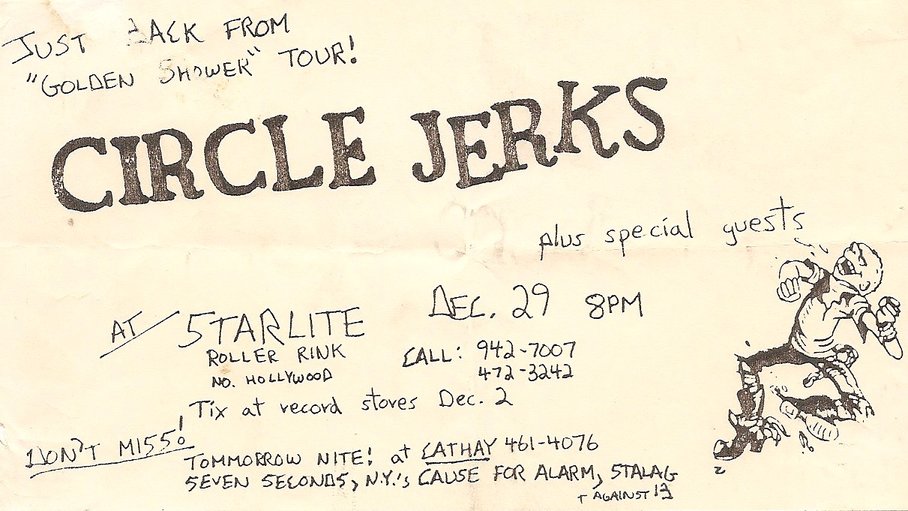 JUST BACK FROM
"GOLDEN SHOWER" TOUR!
CIRCLE JERKS
plus special guests
AT STARLITE
ROLLER RINK
NO. HOLLYWOOD
DEC. 29 8PM
CALL: 942-7007
472-3242
Tix at record stores Dec. 2
DON'T MISS!
TOMMORROW NITE! at CATHAY 461-4076
SEVEN SECONDS, N.Y.'s CAUSE FOR ALARM, STALAG 13
+ AGAINST